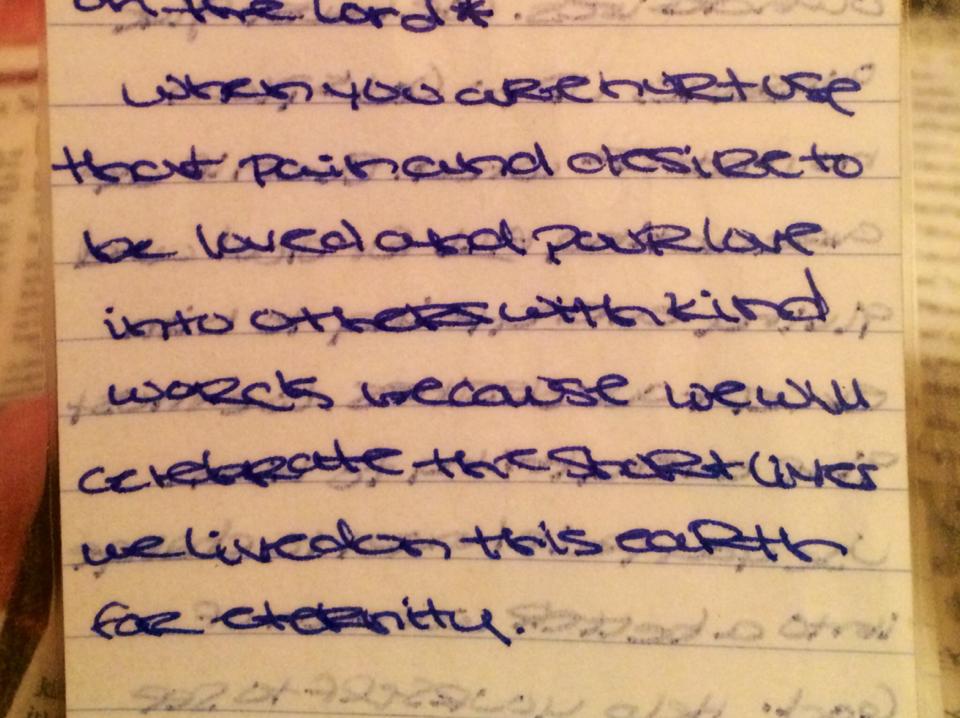 on the Lord*
when you are hurt use
that pain and desire to
be loved and pour love
into others with kind
words because we will
celebrate the short lives
we lived on this earth
for eternity.